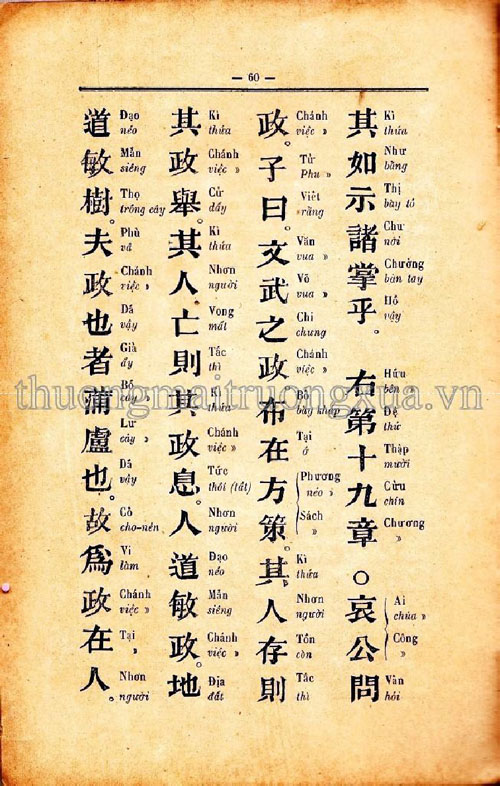 — 60 —
其如示諸掌乎。右第十九章○哀公問
Kì
thửa
Như
bằng
Thị
bày tỏ
Chư
nơi
Chưởng
bàn tay
Hồ
vậy
Hữu
bên
Đệ
thứ
Thập
mười
Cửu
chín
Chương
»
Ai
chúa »
Công
»
Vấn
hỏi
政。子曰。文武之政布在方策。其人存則
Chánh
việc »
Tử
Phu »
Viết
rằng
Văn
vua »
Võ
vua »
Chi
chưng
Chánh
việc »
Bố
bày khắp
Tại
ở
Phương
nẻo »
Sách
»
Kì
thửa
Nhơn
người
Tồn
còn
Tắc
thì
其政舉。其人亡則其政息。人道敏政。地
Kì
thửa
Chánh
việc »
Cử
dấy
Kì
thửa
Nhơn
người
Vong
mất
Tắc
thì
Kì
thửa
Chánh
việc »
Tức
thôi (tắt)
Nhơn
người
Đạo
nẻo
Mẫn
siêng
Chánh
việc »
Địa
đất
道敏樹。夫政也者蒲盧也。故爲政在人。
Đạo
nẻo
Mẫn
siêng
Thọ
trồng cây
Phù
vả
Chánh
việc »
Dã
vậy
Giả
ấy
Bồ
cây »
Lư
cây »
Dã
vậy
Cố
cho-nên
Vi
làm
Chánh
việc »
Tại
»
Nhơn
người
thuongmaitruongxua.vn